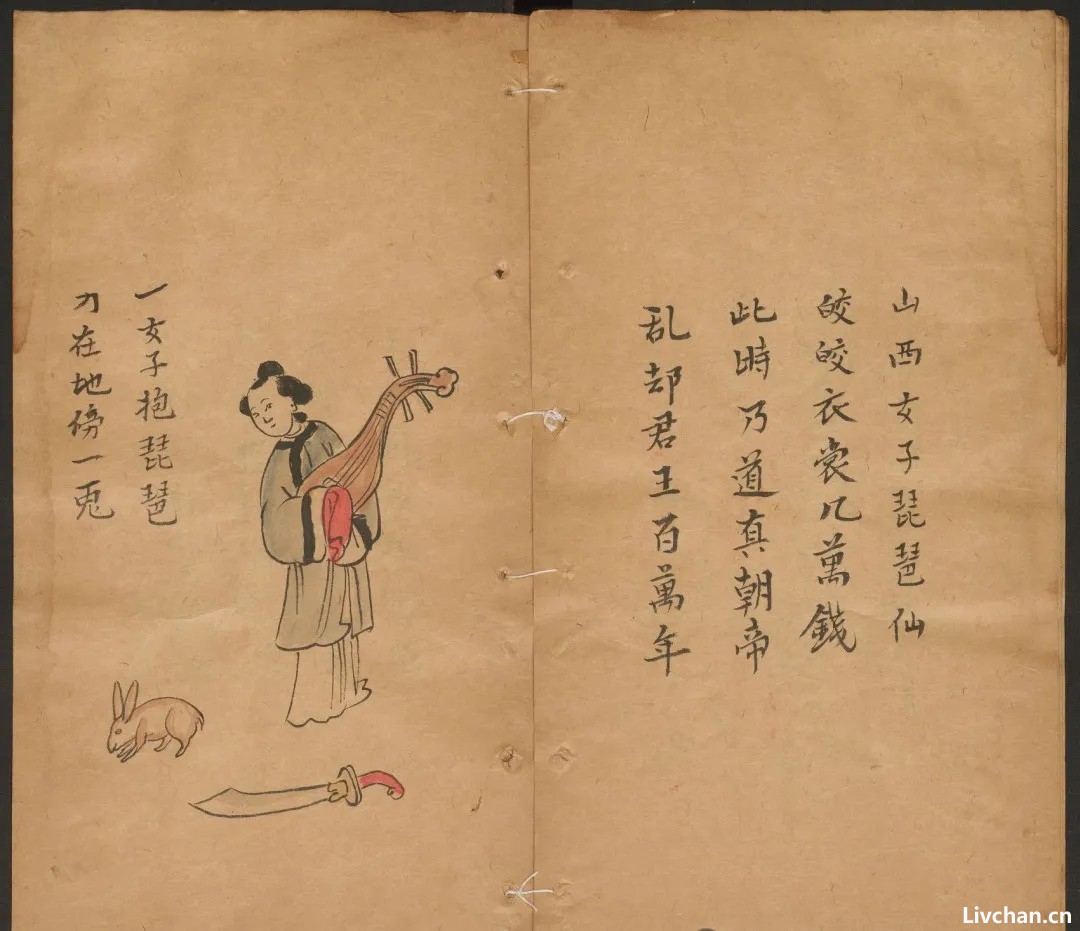 山西女子琵琶仙
皎皎衣裳几萬錢
此時乃道真朝帝
乱却君王百萬年
一女子抱琵琶
刀在地傍一兎
Livchan.cn